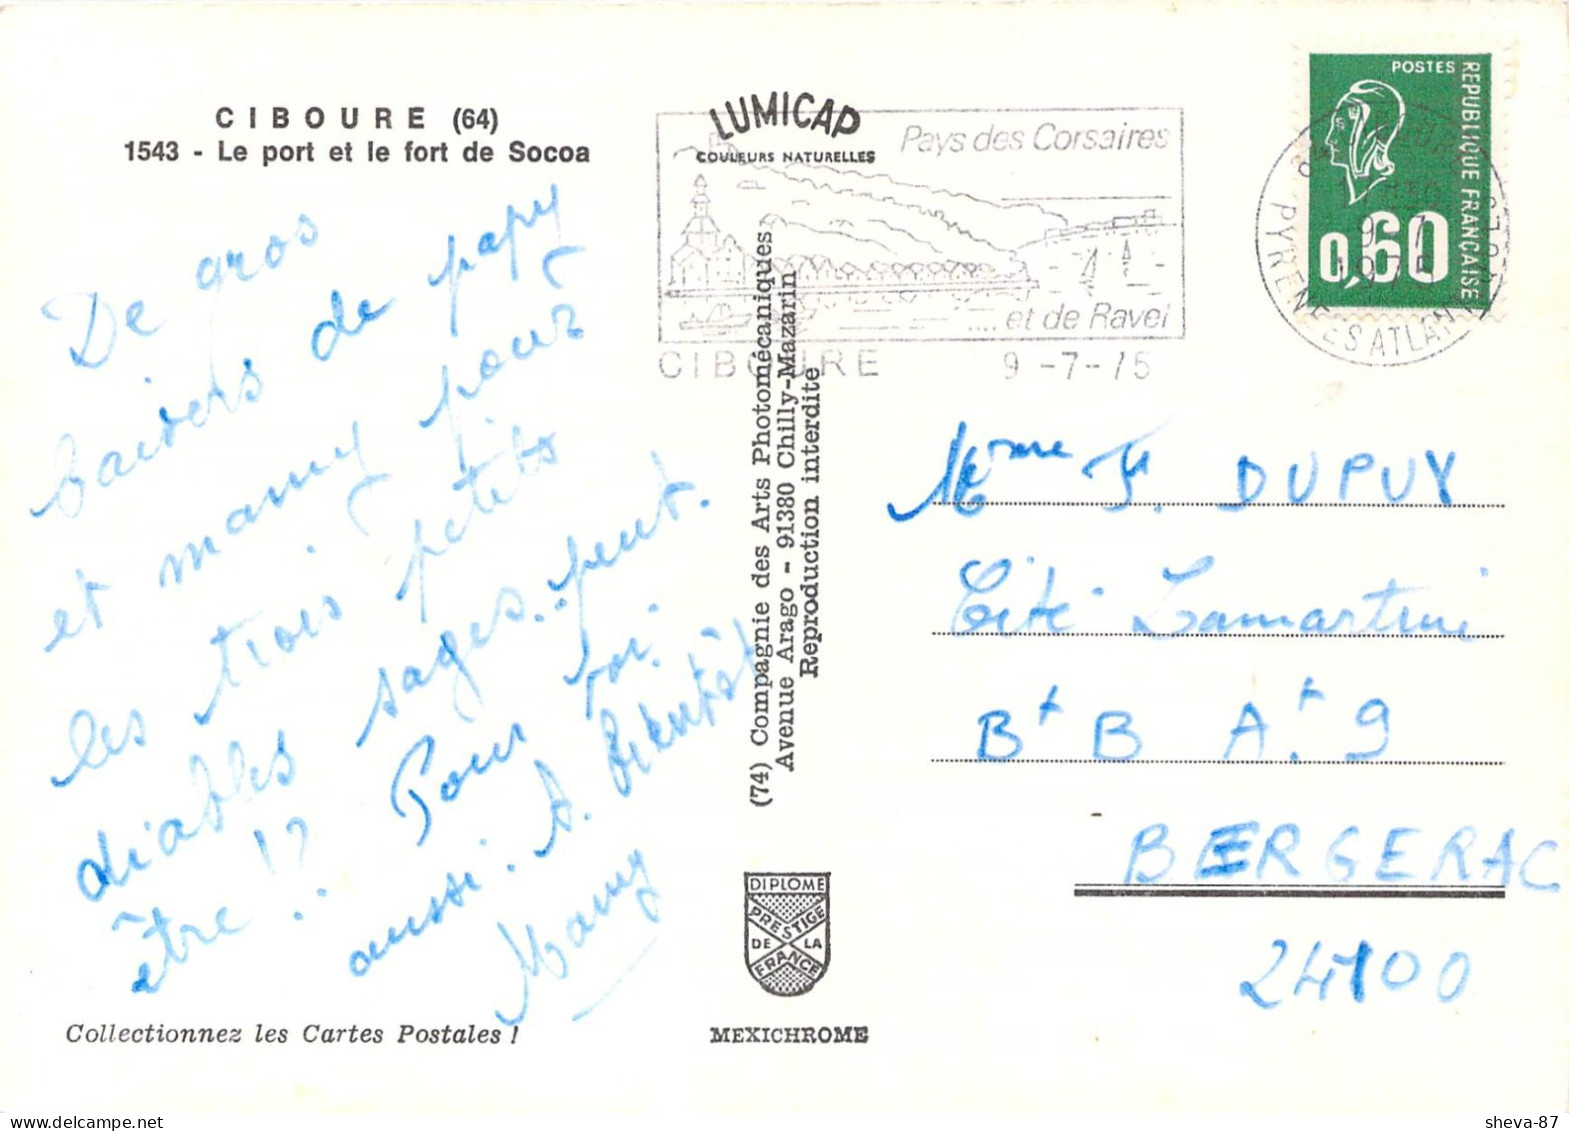 CIBOURE (64)
1543 - Le port et le fort de Socoa
De gros
baisers de papy
et mamy pour
les trois petits
diables sages..peut.
être !? Pour toi
aussi. A bientôt
Mamy
Collectionnez les Cartes Postales !
LUMICAP
COULEURS NATURELLES
Pays des Corsaires
.... et de Ravel
CIBOURE 9-7-75
(74) Compagnie des Arts Photomécaniques
Avenue Arago - 91380 Chilly-Mazarin
Reproduction interdite
DIPLOME
PRESTIGE
DE LA
FRANCE
MEXICHROME
POSTES
REPUBLIQUE FRANÇAISE
0,60
9-7
1975
PYRENEES ATLANT
Mme F. DUPUY
Cité Lamartine
Bt B At 9
BERGERAC
24100
sheva-87